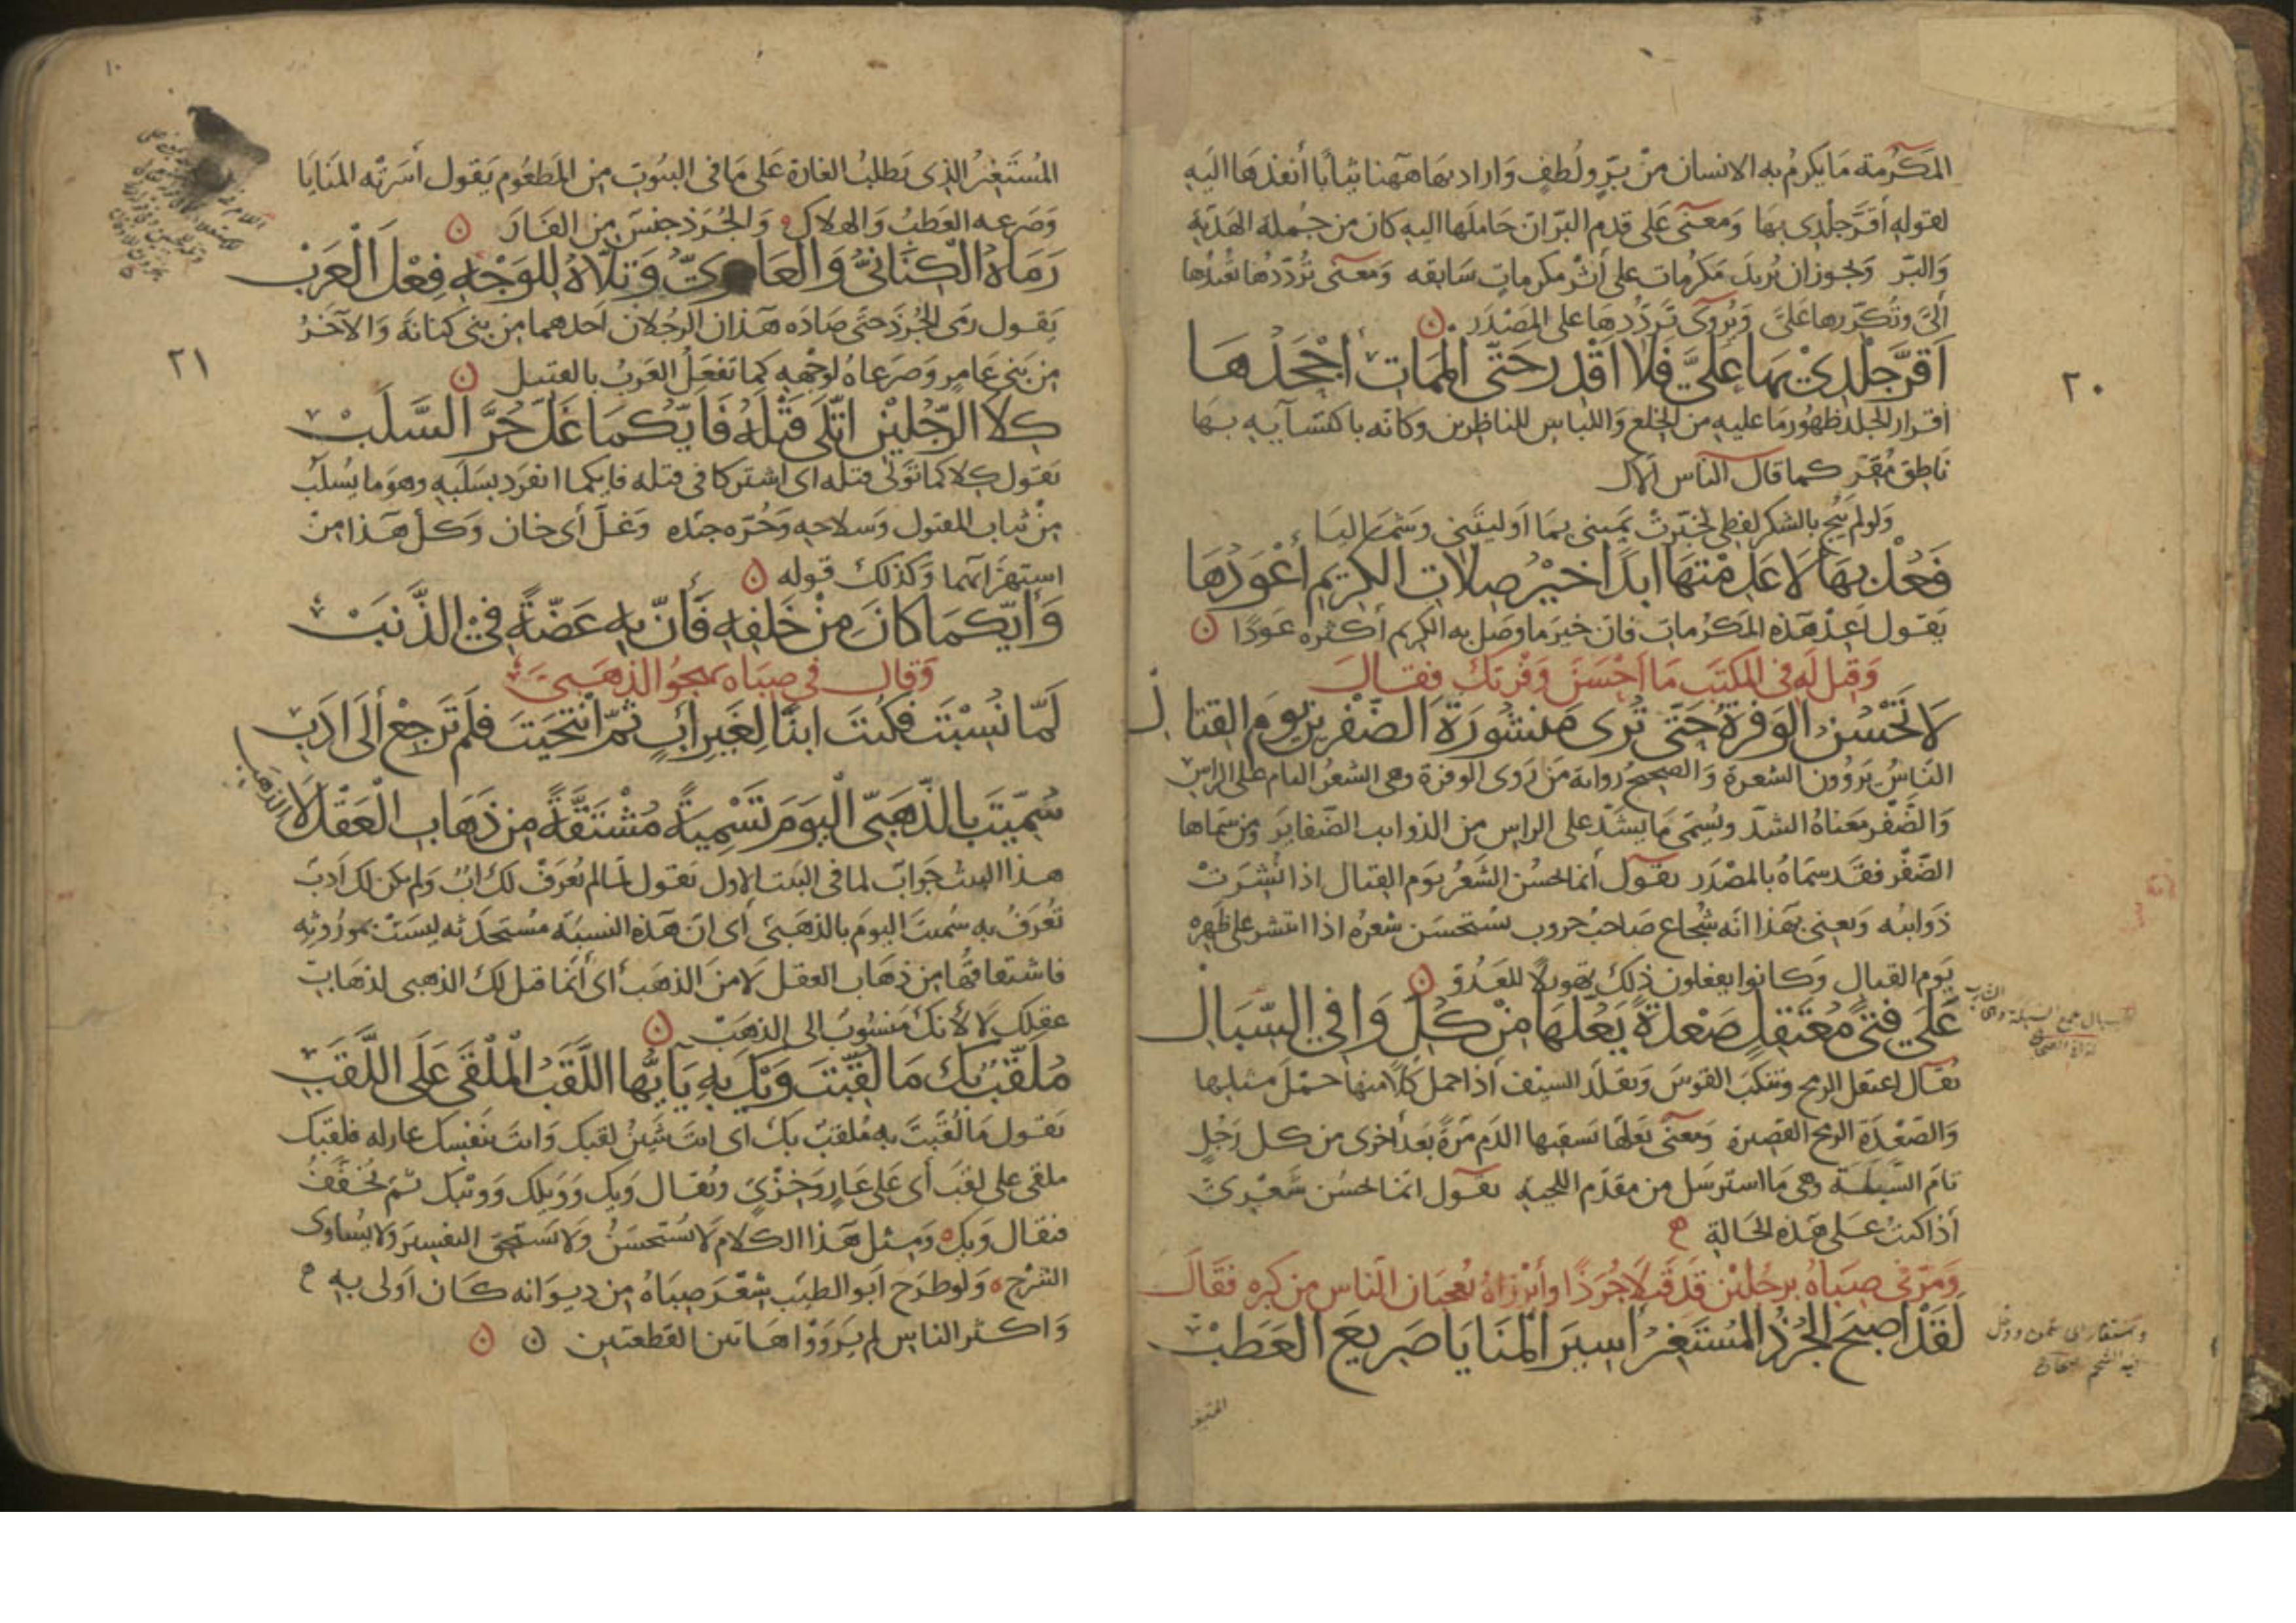 المَكْرُمة مَا يُكرمُ به الانسان مِنْ بِرٍّ ولُطفٍ وَاراد بهَا هٰهنا ثيابًا أنفذهَا اليَهِ
لقوله أَقَرَّ جِلْدِى بهَا وَمعنى عَلى قدم البَرّ انّ حَاملَها اليهِ كانَ من جُملة الهَديّة
وَالبَرّ وَيجوز ان يُريدَ مَكرُمات على أثرْ مكرماتٍ سَابقه وَمعنى تُرَدّدُهَا تُعِيْدُهَا
الىَّ وتُكَرّرها عَلىَّ وَيُروَى تَرَدُّدُهَا على المصْدَر
اَقَرَّ جِلْدِيْ بهَا عَلَيَّ فَلَا اَقْدِر حَتّى المَمَات أجْحَدُهَا
اقرار الجلد ظهُور مَا عليهِ من الخِلَع وَاللباس للناظرين وَكانّه باكتسَآيهِ بهَا
نَاطِق مُقِرّ كما قال الناس الاٰل
وَلولم يَبُح بالشكر لفظى لخبّرتْ يَميني بمَا اَوليتَني وَشمَاليَا
فَعُدْ بهَا لَا عَدِمْتهَا ابدًا خَيْرُ صِلاتِ الكريم أعْوَدُهَا
يَقول أعِدْ هَذه المَكرُمات فانّ خيرَ مَا وَصَل به الكريم أكثره عَودًا
وَقيل لَه فى المكتب مَا أحْسَنَ وَفْرتَكَ فقال
لَا تَحْسُنُ الوَفرَةُ حَتّى تُرى مَنشُورَةَ الضّفرين يوم القتال
النَاسُ يَروُون الشعرة وَالصحيح رواية مَن رَوى الوفرة وهى الشعرُ التام على الراس
وَالضَّفْر معَناهُ الشدّ ويُسَمّى مَا يشَدّ على الراس من الذوايب الضّفايرَ وَمن سَماها
الضّفْر فقد سَمَاهُ بالمصْدَر يقول أنما يحسُن الشَعْرُ يوم القتال اذا نُشِرَتْ
ذَوابتُه وَيعني بهَذا انّه شُجاع صَاحبُ حروب يستحسَن شعرُه اذا انتشر على ظهره
يَوم القتال وَكانوا يفعلون ذلك تهويلا للعَدُوّ
عَلَى فتًى مُعْتَقِلٍ صَعْدَةً يَعُلّهَا مِنْ كُلّ وَافي السّبَال
يقال اعتقل الرمح وتنكبَ القوسَ وَتقلّد السيف أذا حمل كلًا منها حمْلَ مثلها
وَالصّعْدَة الرمح القصيرة وَمعنى يعَلّها يَسقيها الدَم مَرّةً بَعد أخرى من كل رَجُلٍ
تامّ السَّبلة وهى مَا استَرسَل من مقدّم اللحية يقول انما يحسُن شَعْرِى
أذا كنتُ عَلى هَذه الحَالة
وَمَرّ فى صباهُ برجُليْن قد قتلَا جُرَذًا وأبْرزاهُ يُعجبَان النّاس من كبره فقَالَ
لقَدْ اصبَحَ الجُرَذُ المُسْتَغِيْرُ أسِيرَ المَنَايَا صَرِيعَ العَطَبْ
٢٠
المُسْتَغيْرُ الّذِى يَطلبُ الغارة عَلى مَا فى البيُوت مِن المَطعُوم يَقول أسَرتْه المَنايَا
وَصَرعه العَطبُ وَالهلاك وَالجُرَذ جنسٌ مِن الفَار
رَمَاهُ الْكِنَانيُّ وَالعَامِرِيّ وَتلّاهُ لِلوَجْهِ فِعْلَ الْعَرَبْ
يَقول رمَى الجُرَذ حَتى صَادَه هَذان الرجُلان احدهما مِن بنى كنانة وَالآخرُ
مِن بَنى عَامِرٍ وَصَرعاهُ لوجْههِ كما تفعَلُ العَربُ بالقتيل
كِلَا الرّجُلَيْنِ اتّلَى قَتْلَهُ فَايّكُمَا غَلّ حُرَّ السَّلَبْ
يَقول كلاكما توَلى قتله اى اشتركا فى قتله فايكما انفرد بسَلبهِ وهوَ ما يُسلَبُ
مِنْ ثياب المقتول وَسلاحهِ وَحُرّه جيّده وَغلّ أى خان وَكل هَذا مِنْ
استهزايهما وَكذلك قوله
وَأَيّكمَا كانَ مِنْ خَلفِهِ فَأنّ بِهِ عَضّةً فِي الذَّنَبْ
وَقال فى صبَاه يهجُوا الذهَبىَّ
لَمّا نُسِبْتَ فكُنتَ ابنًا لِغَيرِ أبٍ ثمّ انْتَحَيْتَ فلَم تَرجعْ اِلى ادَبِ
سُمّيتَ بالذّهَبيّ الْيَومَ تَسْمِيةً مُشْتَقّةً مِن ذَهَابِ الْعَقْلِ لَا الذهَب
هذا البيت جَوابٌ لما فى البيَت الاول يَقول لمّا لم يُعرَفْ لكَ ابٌ وَلم يكن لك ادَبٌ
تُعرَفُ به سُميتَ اليومَ بالذهَبىّ أى انّ هَذه النسبَة مُستَحدَثه ليسَتْ بموْرُوثه
فاشتقاقهَا مِن ذهَاب العقل لَا منَ الذهَب أى أنّما قيل لكَ الذهبى لذهَاب
عقلِك لَا لأنكَ منسُوبٌ الى الذهَب
مُلَقّبٌ بكَ مَا لُقِّبْتَ وَيْكَ بِهِ يَا أيّها اللّقَبُ الْمُلْقَى عَلَى اللّقَبِ
يَقول مَا لُقّبْتَ به مُلقبٌ بك اى انت شينُ لقبك وَانتَ نَفسِك عار له فلقبك
ملقى على لقبٍ أى عَلى عَارٍ وَخِزْىٍ ويُقال وَيك وَوَيلك وَويبك ثمّ تخفَّفُ
فيقال وَيك وَمثل هَذا الكلام لَا يُستَحسَنُ وَلا يَستحِقّ التفسِيرَ وَلا يُساوى
الشرْح وَلو طرَح اَبو الطيّب شعْرَ صبَاهُ مِن ديوَانه كانَ اَولى به
وَاكثر الناس لم يَرَوْوا هَاتين القطعتين
٢١